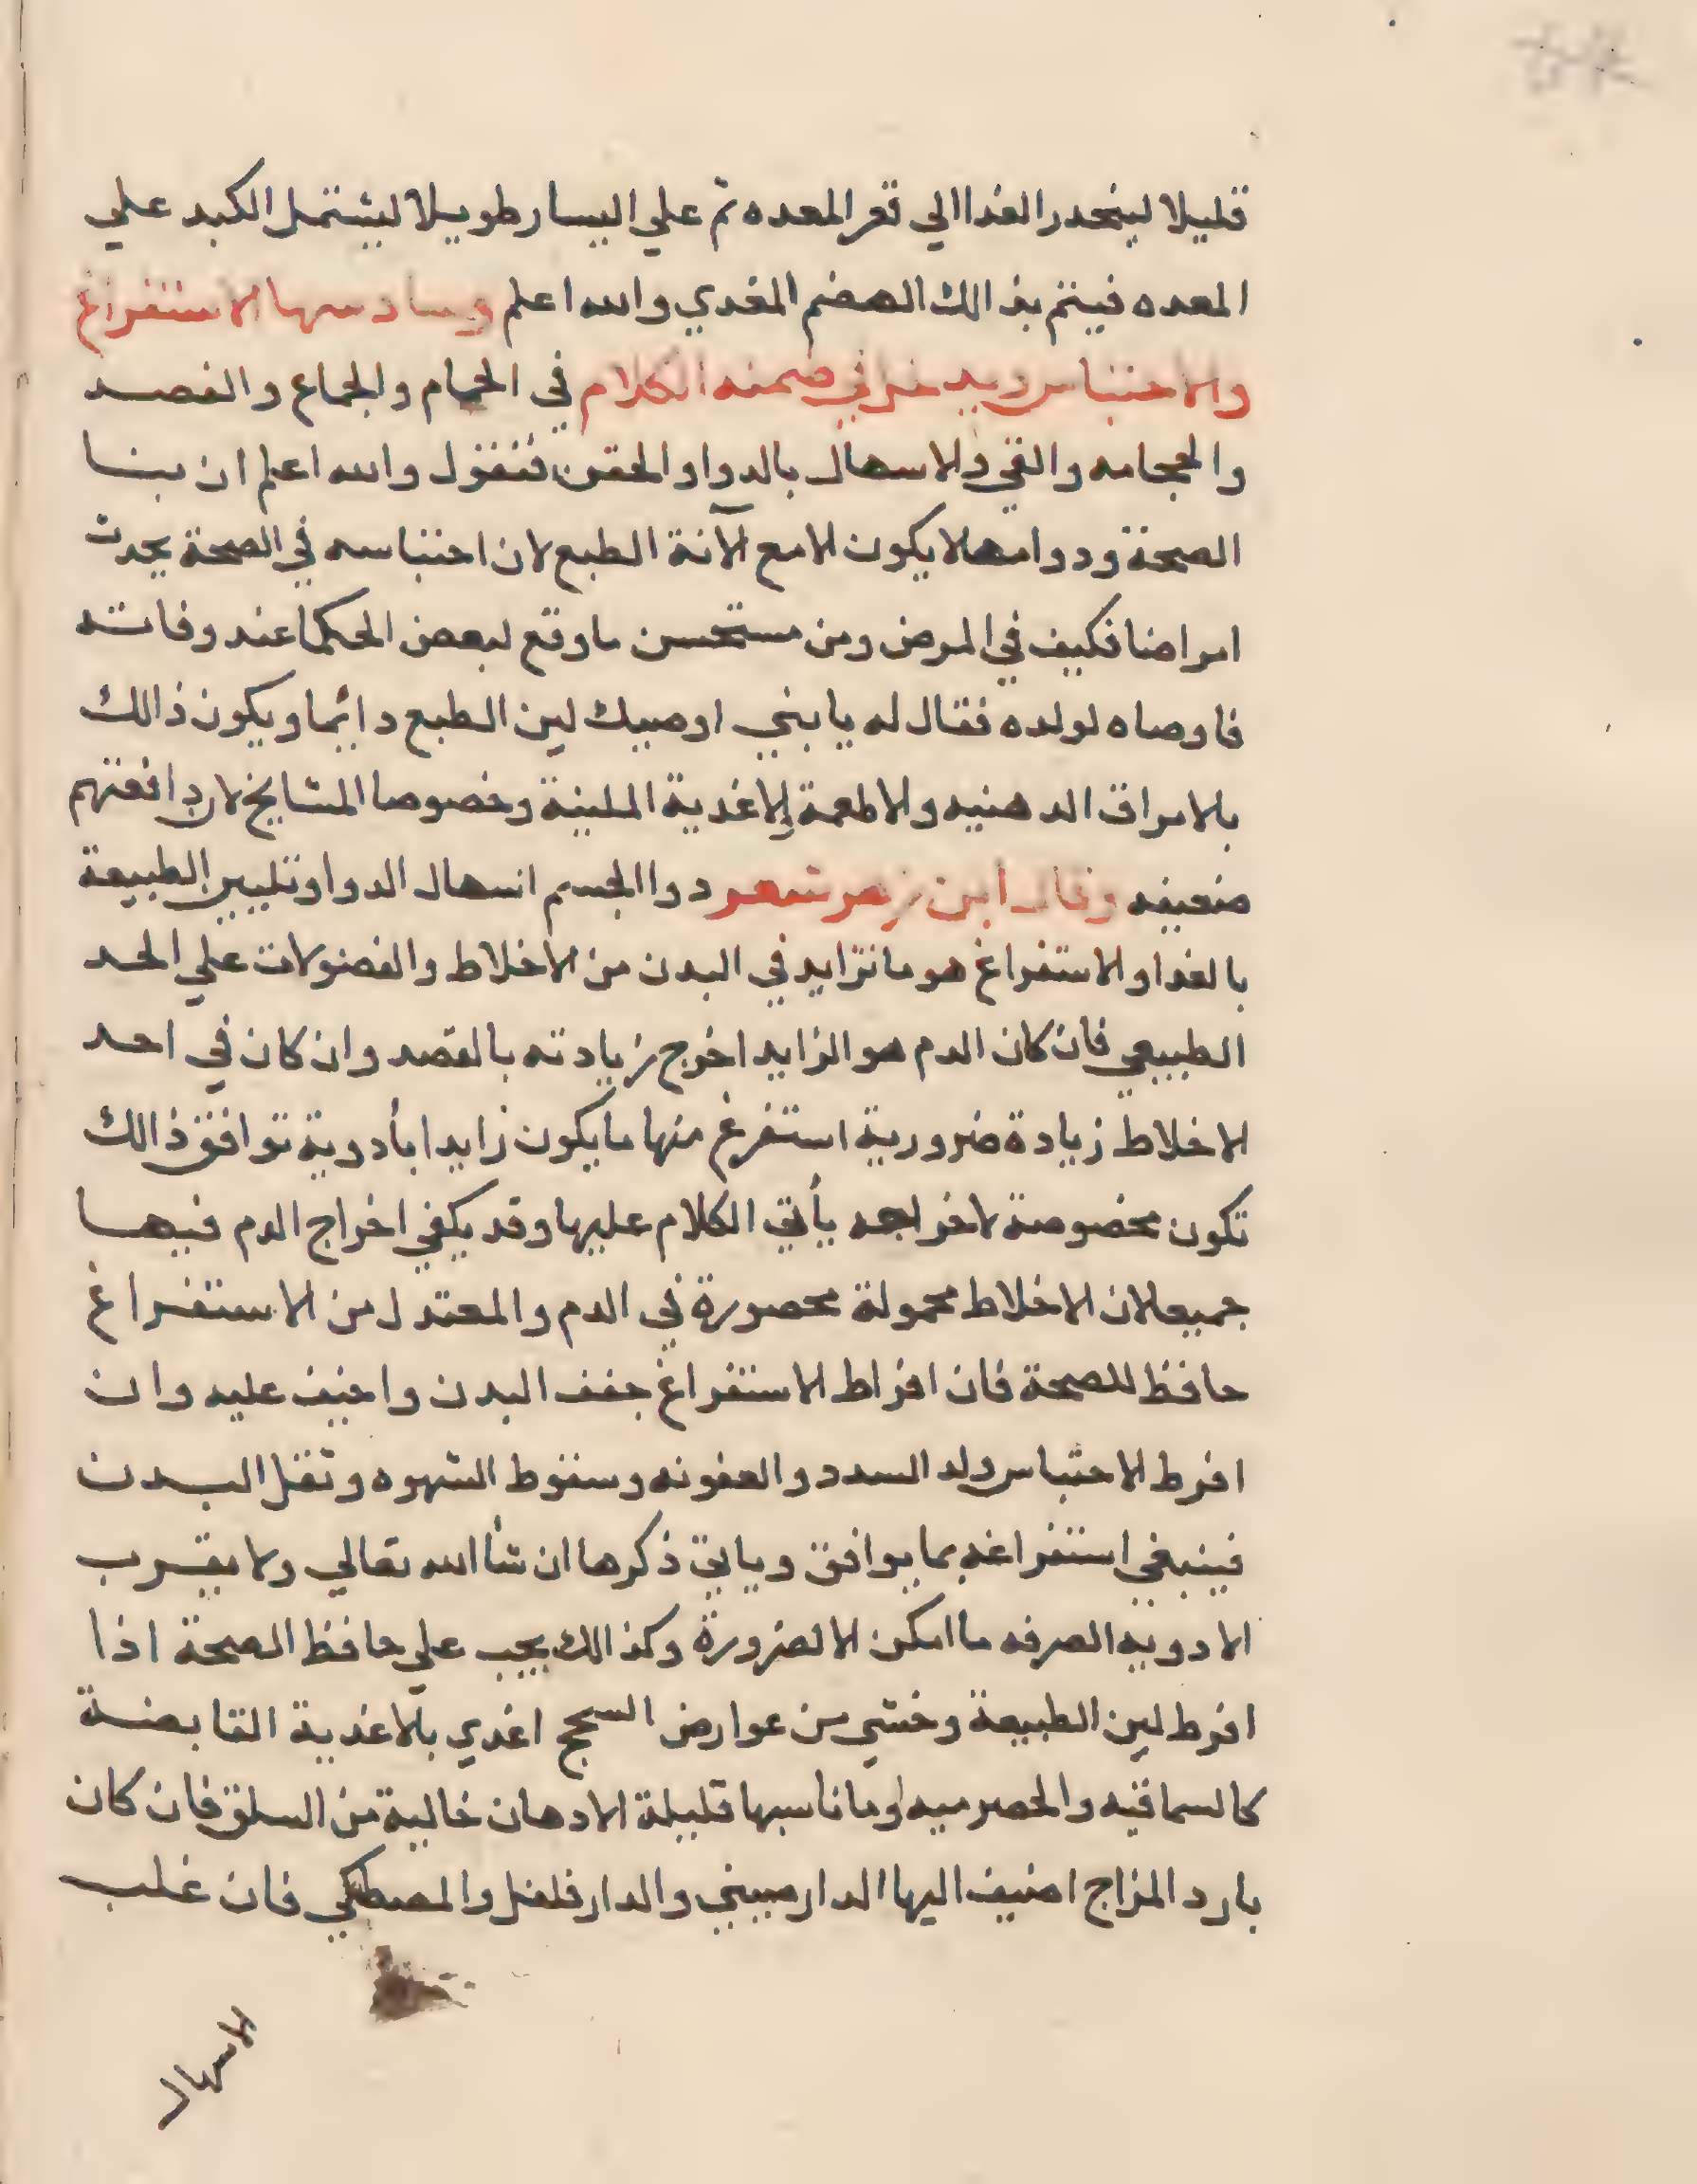 قليلا لينحدر الغذا الي قعر المعده ثم علي اليسار طويلا ليشتمل الكبد علي
المعده فيتم بذالك الهضم المغدي والله اعلم وسادسها الاستفراغ
والاحتباس ويدخل في ضمنه الكلام في الحمام والجماع والفصد
والحجامه والقي والاسهال بالدوا والحقن فنقول والله اعلم ان بنا
الصحة ودوامها لا يكون الا مع الآنة الطبع لان احتباسه في الصحة يحدث
امراضا فكيف في المرض ومن مستحسن ما وقع لبعض الحكما عند وفاته
فاوصاه لولده فقال له يا بني اوصيك لين الطبع دائما ويكون ذالك
بالامراق الدهنيه والاطعمة والاغذية الملينة وخصوصا المشايخ لان دافعتهم
ضعيفه وقال ابن زهر شعر دوا الجسم اسهال الدوا وتليين الطبيعة
بالغدا والاستفراغ هو ما تزايد في البدن من الاخلاط والفضولات علي الحد
الطبيعي فان كان الدم هو الزايد اخرج زيادته بالفصد وان كان في احد
الاخلاط زيادة ضرورية استفرغ منها ما يكون زايدا بأدوية توافق ذالك
تكون مخصوصة لاخراجه يأتي الكلام عليها وقد يكفي اخراج الدم فيها
جميعا لان الاخلاط محمولة محصورة في الدم والمعتدل من الاستفراغ
حافظ للصحة فان افراط الاستفراغ جفف البدن واخيف عليه وان
افرط الاحتباس ولد السدد والعفونه وسقوط الشهوه وثقل البدن
فينبغي استفراغه بما يوافق وياتي ذكرها ان شأ الله تعالي ولا يقرب
الادويه الصرفه ما امكن الا لضرورة وكذالك يجب علي حافظ الصحة اذا
افرط لين الطبيعة وخشي من عوارض السحج اغدي بالاغذية القابضة
كالسماقيه والحصرميه وما ناسبها قليلة الادهان خالية من السلق فان كان
بارد المزاج اضيف اليها الدارصيني والدارفلفل والمصطكي فان غلب
الاسهال